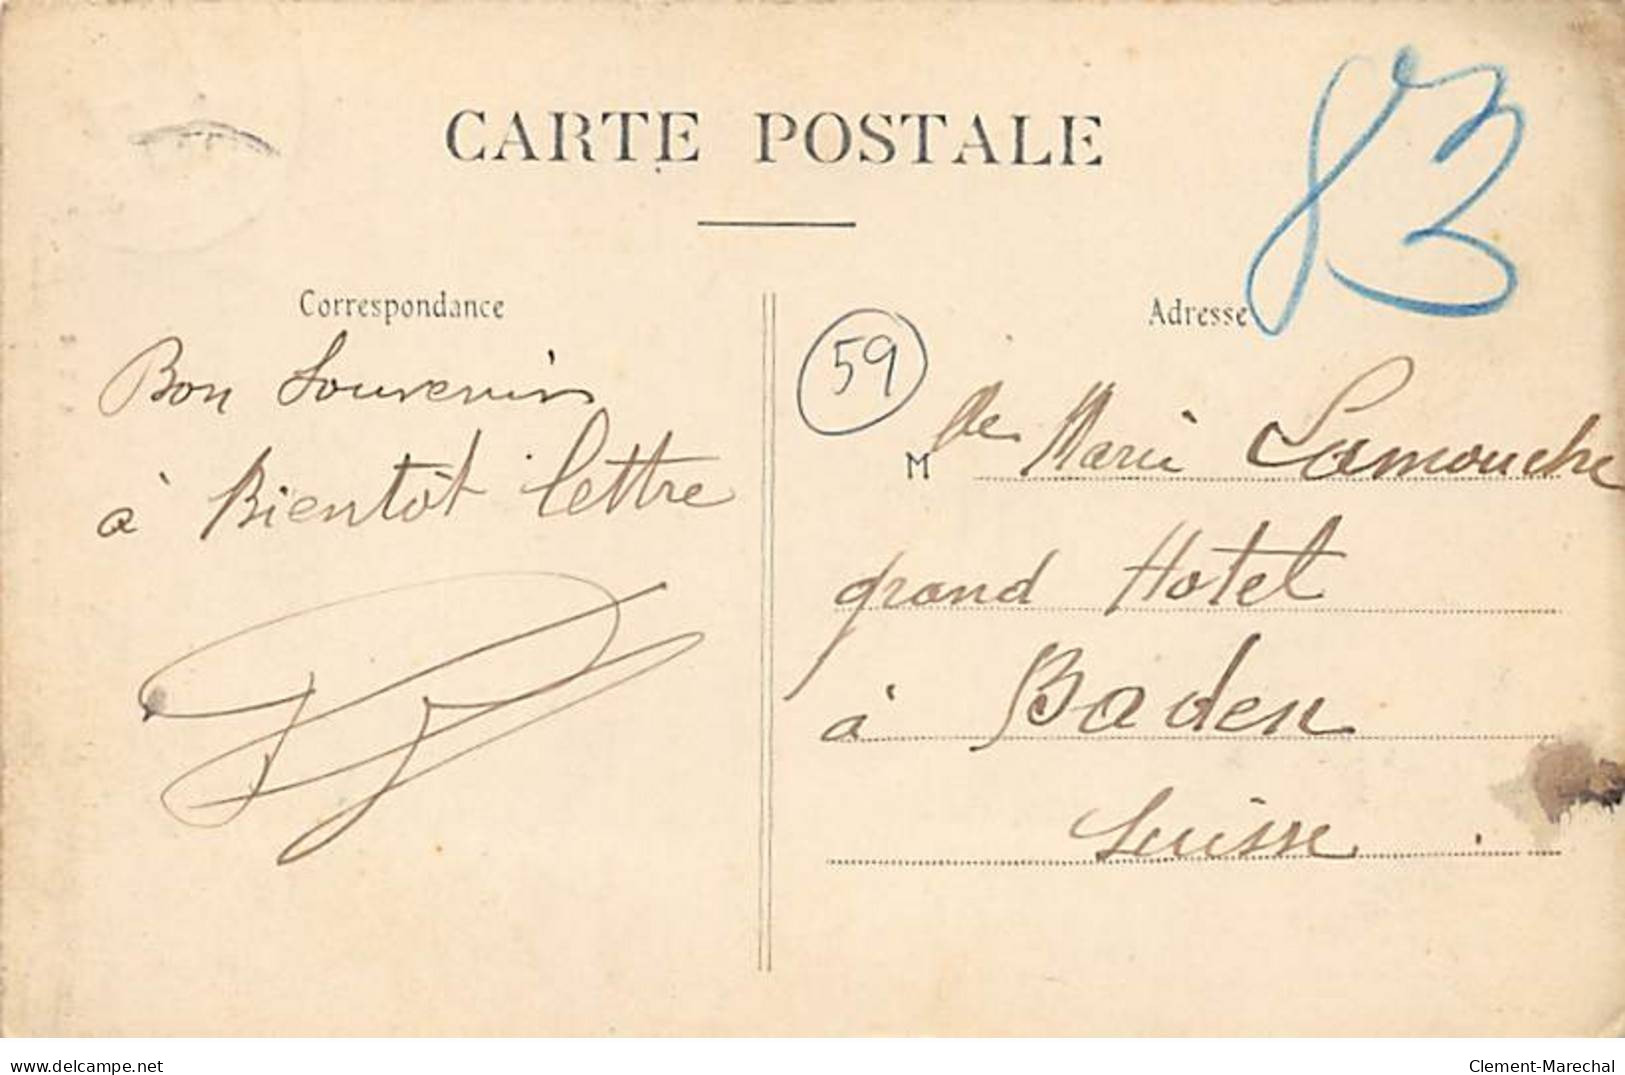 CARTE POSTALE
83
Correspondance
Adresse
59
Bon Souvenir
à Bientôt lettre
Mlle Marie Lamouche
grand Hotel
à Baden
Suisse.
delcampe.net
Clement-Marechal